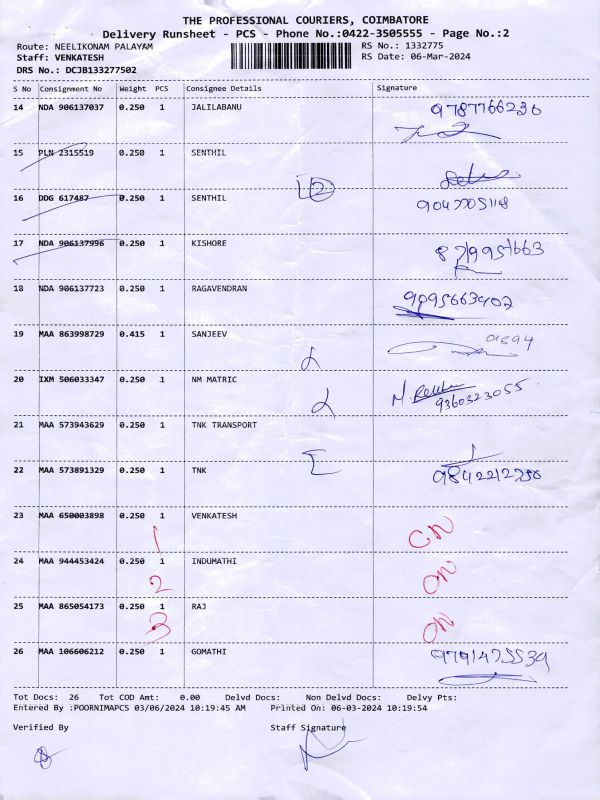 THE PROFESSIONAL COURIERS, COIMBATORE
Delivery Runsheet - PCS - Phone No.:0422-3505555 - Page No.:2
Route: NEELIKONAM PALAYAM RS No.: 1332775
Staff: VENKATESH RS Date: 06-Mar-2024
DRS No.: DCJB133277502
S No Consignment No Weight PCS Consignee Details Signature
14 NDA 906137037 0.250 1 JALILABANU 9787766230
15 PLN 2315519 0.250 1 SENTHIL
16 DDG 617487 0.250 1 SENTHIL
17 NDA 906137996 0.250 1 KISHORE
18 NDA 906137723 0.250 1 RAGAVENDRAN 9095663402
19 MAA 863998729 0.415 1 SANJEEV
20 IXM 506033347 0.250 1 NM MATRIC 9360323055
21 MAA 573943629 0.250 1 TNK TRANSPORT
22 MAA 573891329 0.250 1 TNK 9842212750
23 MAA 650003898 0.250 1 VENKATESH
1
24 MAA 944453424 0.250 1 INDUMATHI
2
25 MAA 865054173 0.250 1 RAJ
3
26 MAA 106606212 0.250 1 GOMATHI 9791475539
Tot Docs: 26 Tot COD Amt: 0.00 Delvd Docs: Non Delvd Docs: Delvy Pts:
Entered By :POORNIMAPCS 03/06/2024 10:19:45 AM Printed On: 06-03-2024 10:19:54
Verified By Staff Signature